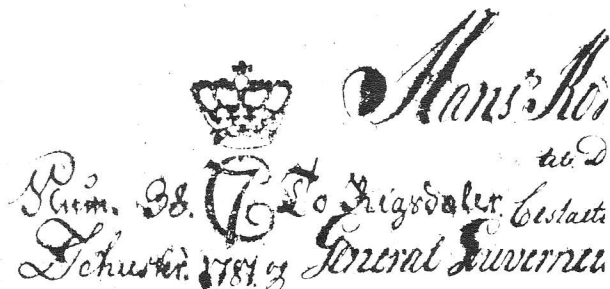 Hans Ko
til D
Num. 38. C7 To Rigsdaler. bestaet
Schuster. 1781. og General Guverneu